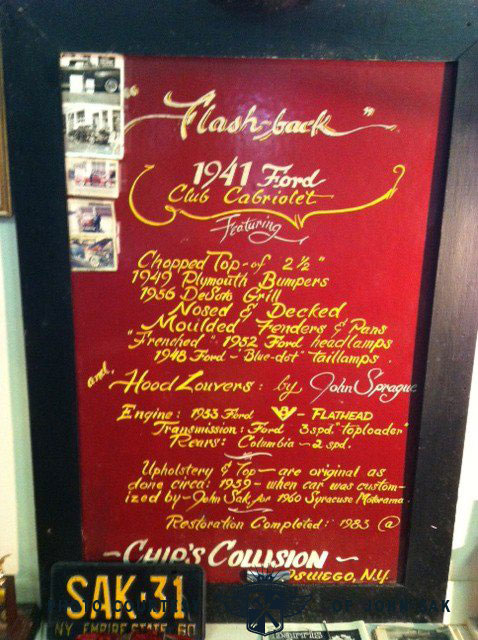 "Flash-back"
1941 Ford
Club Cabriolet
Featuring
Chopped Top - of 2½"
1949 Plymouth Bumpers
1956 DeSoto Grill
Nosed & Decked
Moulded Fenders & Pans
"Frenched" 1952 Ford headlamps
1948 Ford - "Blue-dot" taillamps.
and. Hood Louvers: by John Sprague
Engine: 1953 Ford V8 - FLATHEAD
Transmission: Ford 3 spd. "toploader"
Rears: Columbia - 2 spd.
Upholstery & Top - are original as
done circa: 1959 - when car was custom-
ized by - John Sak, for 1960 Syracuse Motorama.
Restoration Completed: 1983 @
- CHIP'S COLLISION ~
OSWEGO, N.Y.
SAK·31
NY EMPIRE STATE 60